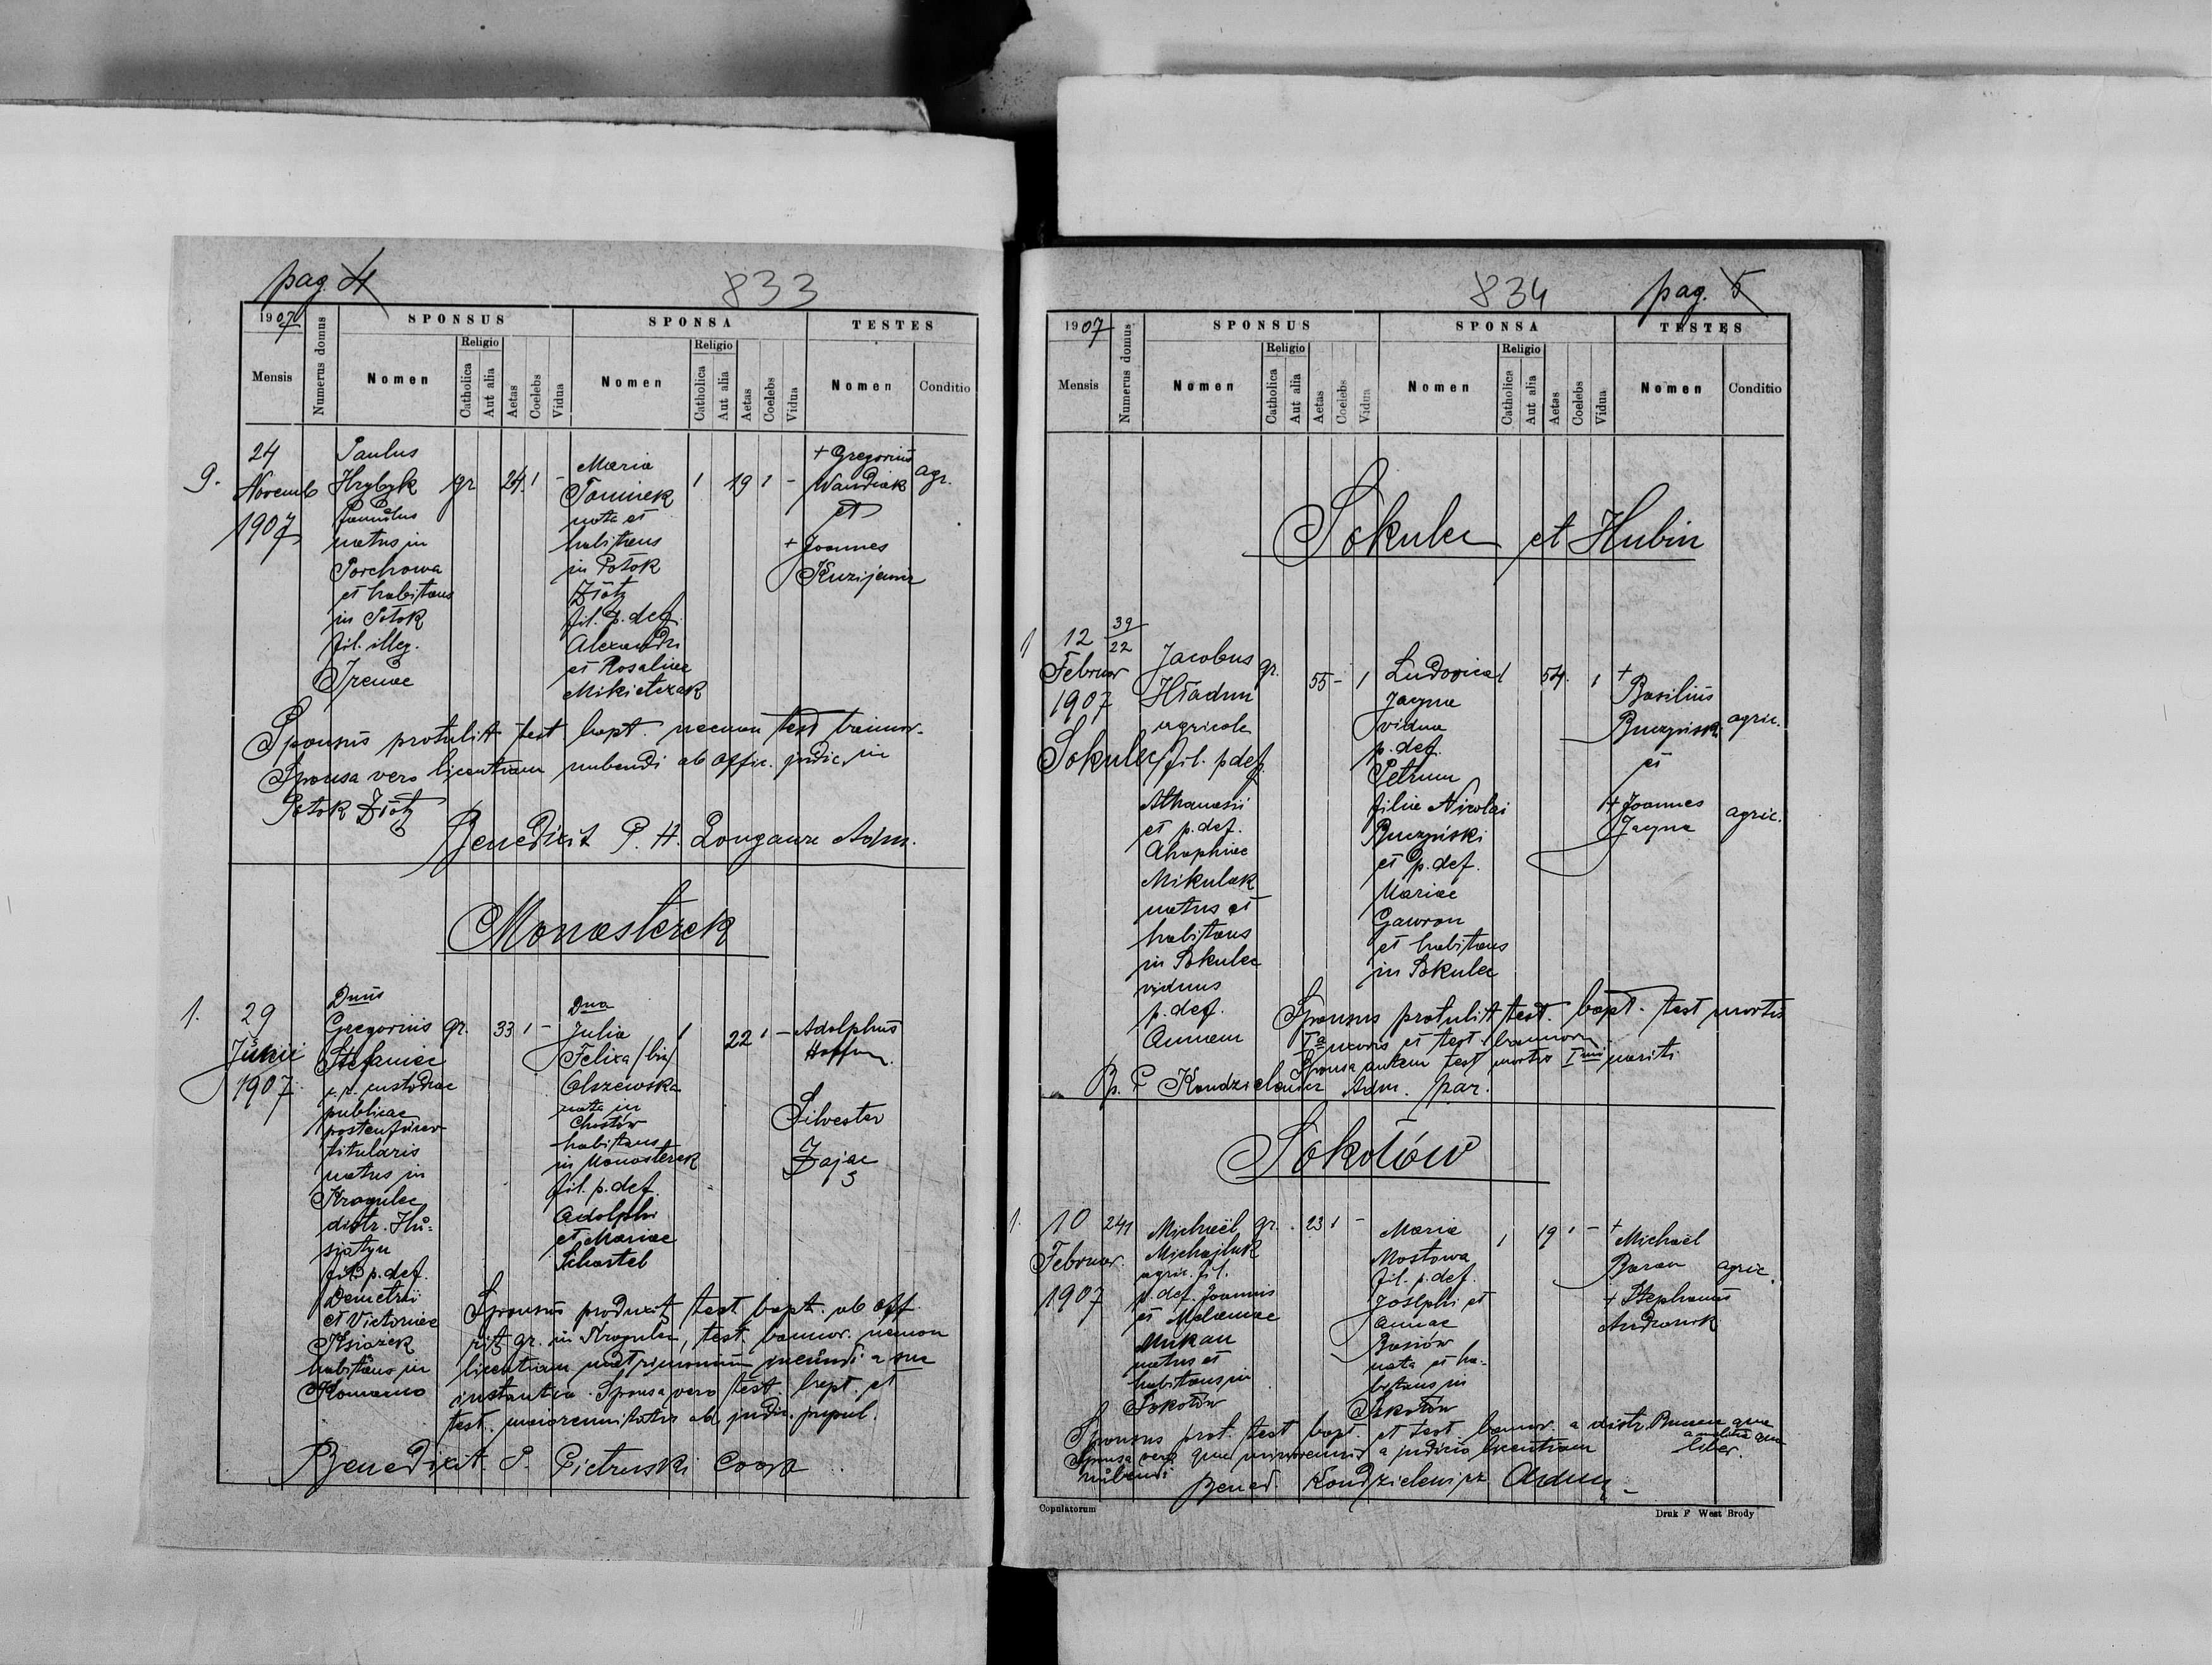 pag. 4
833
1907
Mensis
Numerus domus
SPONSUS
Nomen
Religio
Catholica
Aut alia
Aetas
Coelebs
Vidua
SPONSA
Nomen
Religio
Catholica
Aut alia
Aetas
Coelebs
Vidua
TESTES
Nomen
Conditio
9.
24
Novemb
1907
Paulus
Hrybyk
famulus
natus in
Porchowa
et habitans
in Potok
fil. illeg.
Irenae
gr
24 1 -
Maria
nata et
habitans
in Potok
Złoty
fil. p. def.
Alexandri
et Rosaliae
Mikietczak
1 19 1 -
+ Gregorius
Wandiak
et
+ Joannes
agr.
Sponsus protulit test bapt. necnon test bannor.
Sponsa vero licentiam nubendi ab offic. judic. in
Potok Złoty
Benedixit P. H. Adm.
Monasterek
1.
29
Junii
1907
Dnus
Gregorius
Stefaniec
c. r. custodiae
publicae
postenfürer
titularis
natus in
Krogulec
distr. Hu=
siatyn
fil. p. def.
Demetrii
et Victoriae
Książek
habitans in
Komarno
gr. 33 1 -
Dna
Julia
Felixa /bin/
Olszewska
nata in
Chostów
habitans
in Monasterek
fil. p. def.
Adolphi
et Mariae
Schastel
1 22 1 -
Adolphus
Silvester
Zając
Sponsus produxit test. bapt. ab off.
rit. gr. in Krogulec, test. bannor. necnon
licentiam matrimonium ineundi a sua
instantia. Sponsa vero test. bapt. et
test. maiorennitatis ab judic. pupul.
Benedixit. P. Pietruski Coop
834
pag. 5
1907
Mensis
Numerus domus
SPONSUS
Nomen
Religio
Catholica
Aut alia
Aetas
Coelebs
Vidua
SPONSA
Nomen
Religio
Catholica
Aut alia
Aetas
Coelebs
Vidua
TESTES
Nomen
Conditio
Sokulec et Hubin
1
12
Februar
1907
Sokulec
39
22
Jacobus
Hładun
agricola
fil. p def.
Athanasii
et p. def.
Ahaphiae
Mikulak
natus et
habitans
in Sokulec
viduus
p. def.
Annam
gr. 55 - 1
Ludovica
Jacyna
vidua
p. def.
Petrum
filia Nicolai
Buczyński
et p. def.
Mariae
Gawron
et habitans
in Sokulec
1 54. 1
+
Basilius
Buczyński
et
+ Joannes
Jacyna
agric.
agric.
Sponsus protulit test. bapt. test mortis
Iae uxoris et test. bannor.
Sponsa autem test mortis Imi mariti
Bp. P Kondzielewicz Adm. par.
Sokołów
1.
10
Februar.
1907
241
Michaël
Michajluk
agric. fil.
p. def. Joannis
et Melaniae
Mikan
natus et
habitans in
Sokołów
gr. 23 1 -
Maria
Mostowa
fil. p. def.
Josephi et
Annae
Basiów
nata et ha-
bitans in
Sokołów
1 19 1 -
+
Michaël
Baran
+ Stephanus
Andrusik
agric.
Sponsus prot. test bapt. et test. bannor. a distr. Buczacz qua
a militia qua
liber.
Sponsa vero qua minorennis a judicio licentiam
nubendi
Bened. Kondzielewicz Adm
Copulatorum
Druk F West Brody